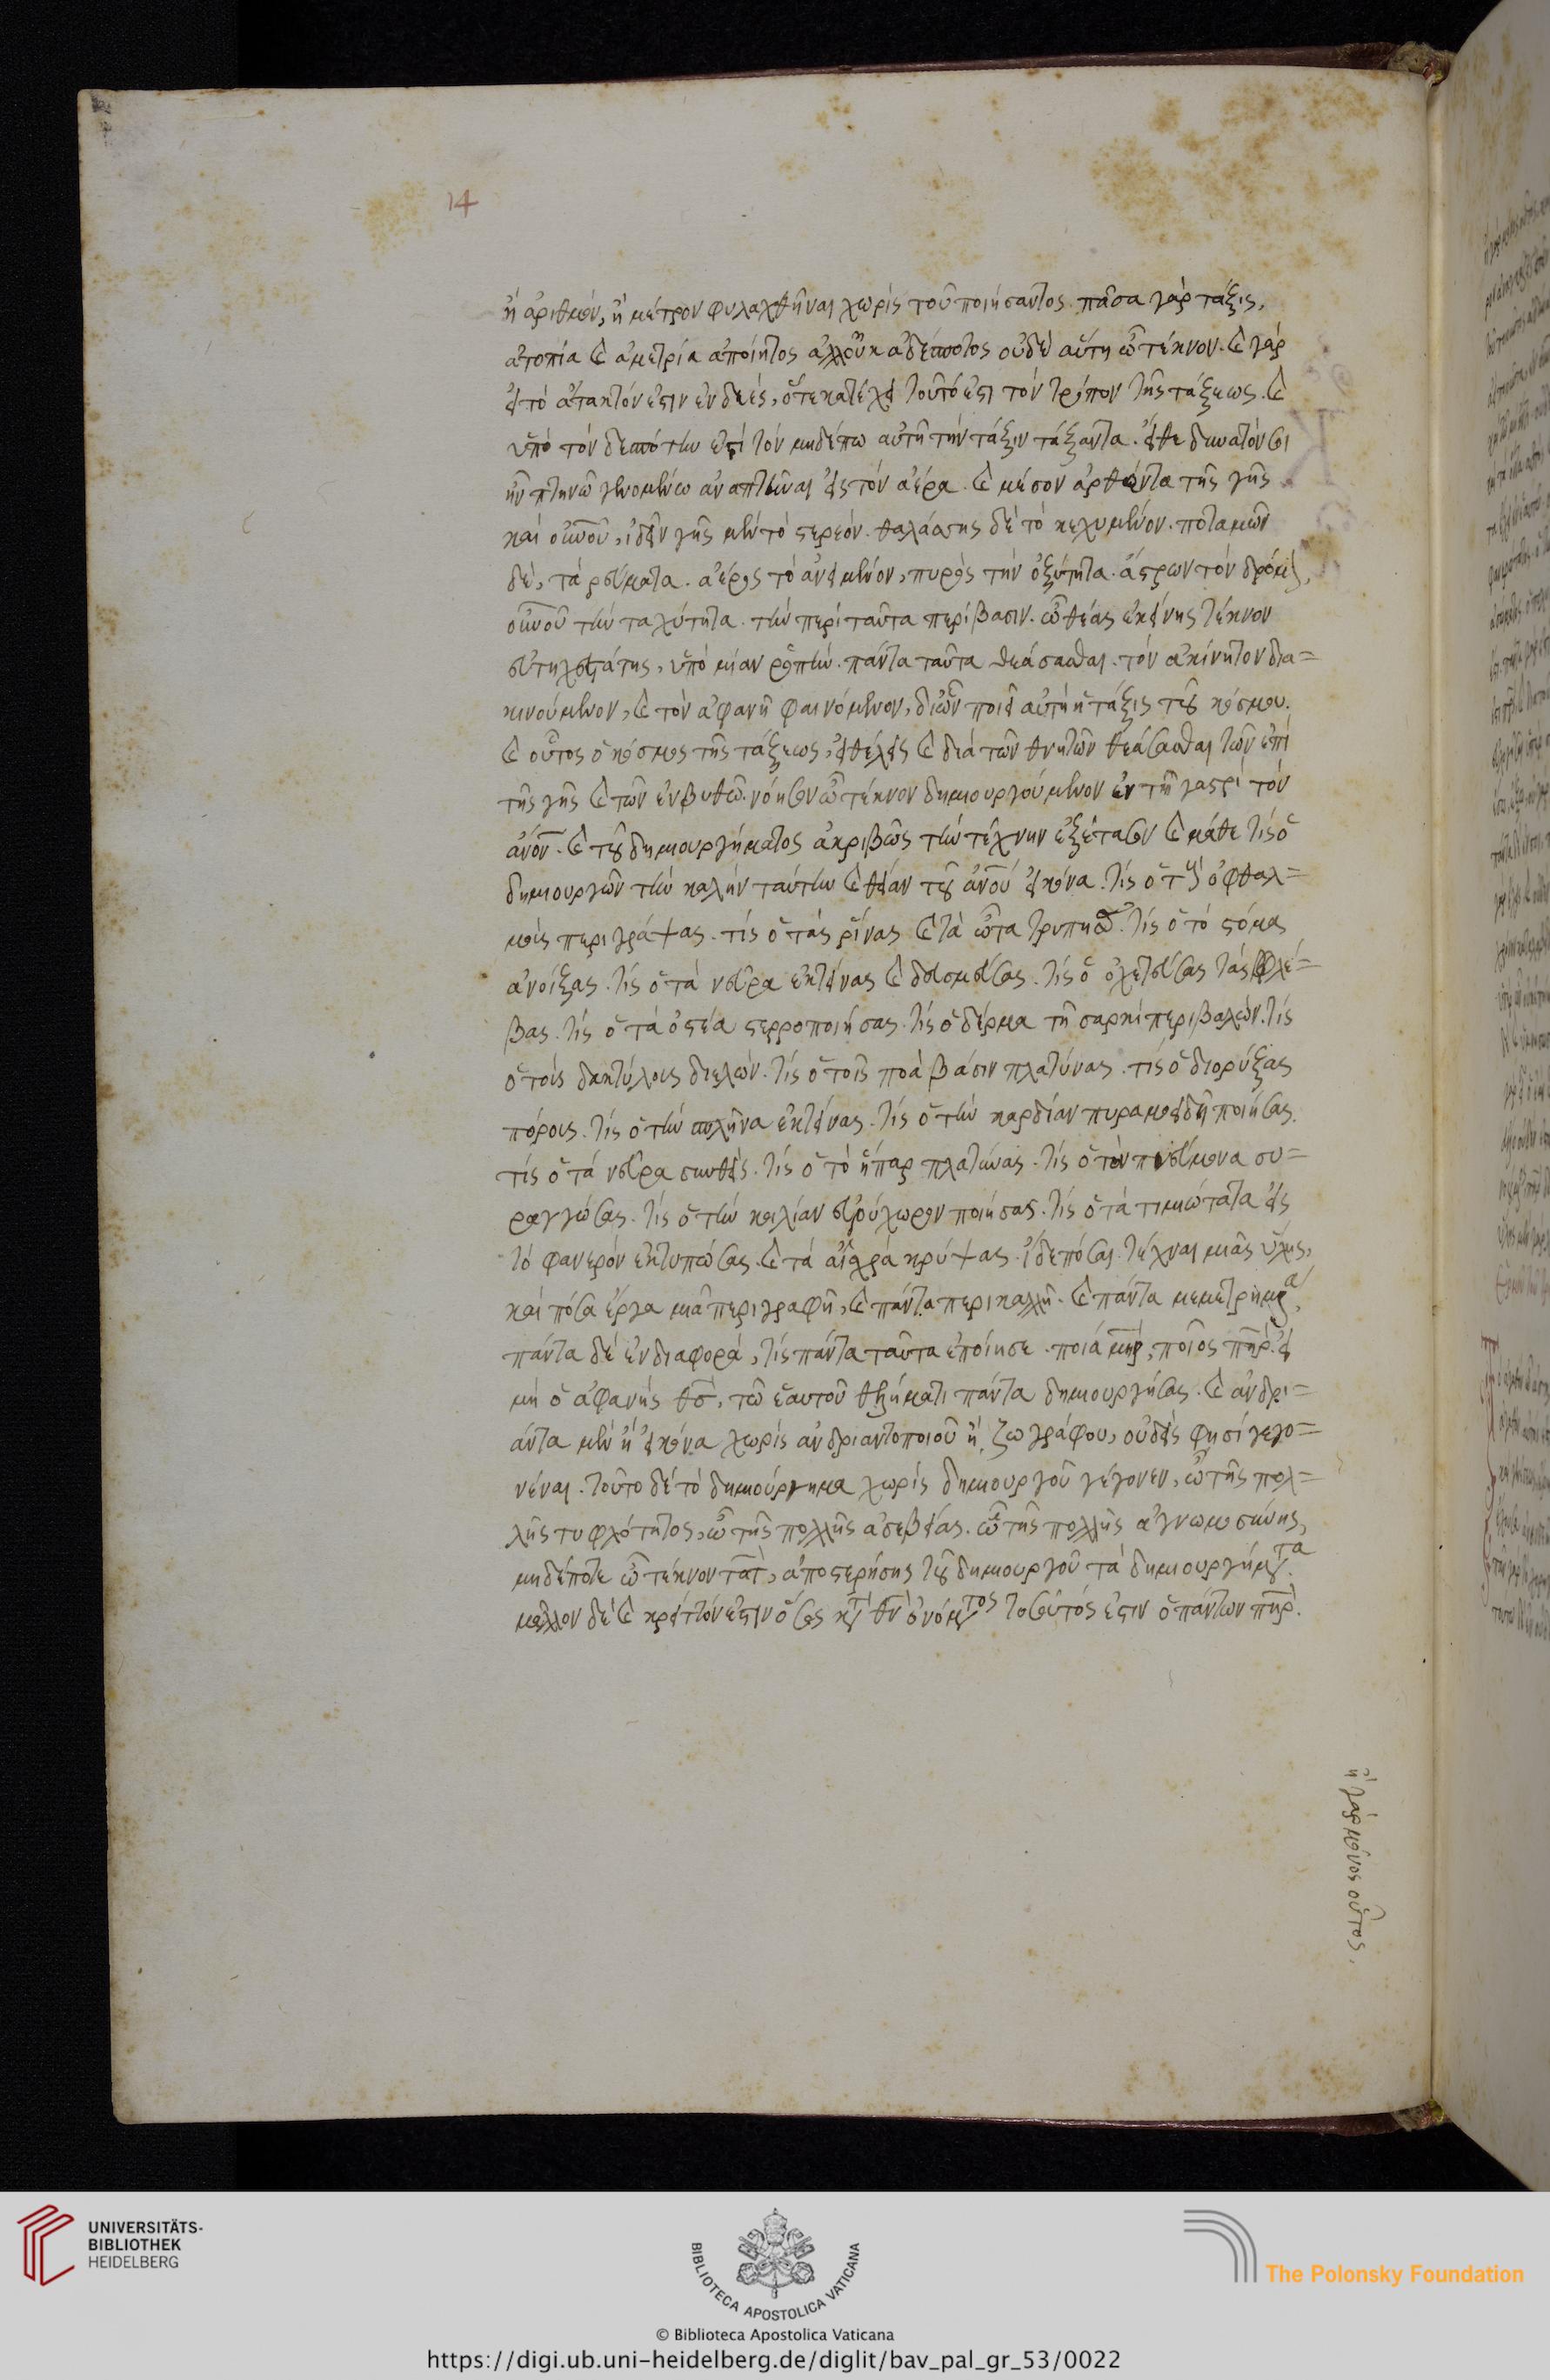 14
ἢ ἀριθμόν, ἢ μέτρον φυλαχθῆναι χωρὶς τοῦ ποιήσαντος. πᾶσα γὰρ τάξις,
ἀτοπία καὶ ἀμετρία ἀποίητος ἀλλ' οὐκ ἀδέσποτος οὐδὲ αὕτη ὦ τέκνον. καὶ γὰρ
εἰ τὸ ἄτακτόν ἐστιν ἐνδεὲς, ὅτε κατέχει τοῦτό ἐστι τὸν τρόπον τῆς τάξεως. καὶ
ὑπὸ τὸν δεσπότην ἐστὶ τὸν μηδέπω αὐτῇ τὴν τάξιν τάξαντα. εἴθε δυνατόν σοι
ἦν πτηνῷ γενομένω ἀναπτῆναι εἰς τὸν ἀέρα. καὶ μέσον ἀρθέντα τῆς γῆς
καὶ οὐνοῦ, ἰδεῖν γῆς μὲν τὸ στερεόν. θαλάσσης δὲ τὸ κεχυμένον. ποταμῶν
δὲ, τὰ ρεύματα. ἀέρος τὸ ἀνειμένον, πυρὸς τὴν ὀξύτητα. ἄστρων τὸν δρόμον,
οὐνοῦ τὴν ταχύτητα. τὴν περὶ ταῦτα περίβασιν. ὢ θέας ἐκείνης τέκνον
εὐτυχεστάτης, ὑπὸ μίαν ῥοπὴν. πάντα ταῦτα θεάσασθαι. τὸν ἀκίνητον δια=
κινούμενον, καὶ τὸν ἀφανῆ φαινόμενον, δι' ὧν ποιεῖ αὐτὴ ἡ τάξις τοῦ κόσμου.
καὶ οὗτος ὁ κόσμος τῆς τάξεως, εἰ θέλεις καὶ διὰ τῶν θνητῶν θεάσασθαι τῶν ἐπὶ
τῆς γῆς καὶ τῶν ἐν βυθῶ. νόησον ὦ τέκνον δημιουργούμενον ἐν τῇ γαστρὶ τὸν
ἀνον. καὶ τοῦ δημιουργήματος ἀκριβῶς τὴν τέχνην ἐξέτασον καὶ μάθε τίς ὁ
δημιουργῶν τὴν καλὴν ταύτην καὶ θείαν τοῦ ἀνοῦ εἰκόνα. τίς ὁ τοὺς ὀφθαλ=
μοὺς περιγράψας. τίς ὁ τὰς ρῖνας καὶ τὰ ὦτα τρυπήσας. τίς ὁ τὸ στόμα
ἀνοίξας. τίς ὁ τὰ νεῦρα ἐκτείνας καὶ δεσμεύσας. τίς ὁ ὀχετεύσας τὰς φλέ=
βας. τίς ὁ τὰ ὀστέα στερροποιήσας. τίς ὁ δέρμα τῇ σαρκὶ περιβαλών. τίς
ὁ τοὺς δακτύλους διελών. τίς ὁ τοῖς ποσὶ βάσιν πλατύνας. τίς ὁ διορύξας
πόρους. τίς ὁ τὴν σπλῆνα ἐκτείνας. τίς ὁ τὴν καρδίαν πυραμοειδῆ ποιήσας.
τίς ὁ τὰ νεῦρα συνθεὶς. τίς ὁ τὸ ἧπαρ πλατύνας. τίς ὁ τὸν πνεύμονα συ=
ραγγώσας. τίς ὁ τὴν κοιλίαν εὐρύχωρον ποιήσας. τίς ὁ τὰ τιμιώτατα εἰς
τὸ φανερὸν ἐκτυπώσας. καὶ τὰ αἰσχρὰ κρύψας. ἴδε πόσαι τέχναι μιᾶς ὕλης,
καὶ πόσα ἔργα μιᾷ περιγραφῇ, καὶ πάντα περικαλλῆ. καὶ πάντα μεμετρημένα,
πάντα δὲ ἐν διαφορᾷ, τίς πάντα ταῦτα ἐποίησε. ποία μηρ, ποῖος πηρ. εἰ
μὴ ὁ ἀφανὴς θσ, τῶ ἑαυτοῦ θελήματι πάντα δημιουργήσας. καὶ ἀνδρι=
άντα μὲν ἢ εἰκόνα χωρὶς ἀνδριαντοποιοῦ ἢ ζωγράφου, οὐδεὶς φησὶ γεγο=
νέναι. τοῦτο δὲ τὸ δημιούργημα χωρὶς δημιουργοῦ γέγονεν, ὢ τῆς πολ=
λῆς τυφλότητος, ὢ τῆς πολλῆς ἀσεβείας. ὢ τῆς πολλῆς ἀγνωμοσύνης,
μηδέποτε ὦ τέκνον τὰτ, ἀποστερήσης τοῦ δημιουργοῦ τὰ δημιουργήματα.
μᾶλλον δὲ καὶ κρείττόν ἐστιν ὅσος κατὰ θν ὀνόματος τοσοῦτός ἐστιν ὁ πάντων πηρ.
ἢ γὰρ μόνος οὗτος.
UNIVERSITÄTS-
BIBLIOTHEK
HEIDELBERG
BIBLIOTECA APOSTOLICA VATICANA
© Biblioteca Apostolica Vaticana
The Polonsky Foundation
https://digi.ub.uni-heidelberg.de/diglit/bav_pal_gr_53/0022